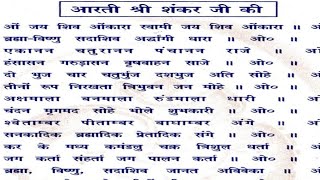 आरती श्री शंकर जी की
ओं जय शिव ओंकारा स्वामी जय शिव ओंकारा ॥
ब्रह्मा-विष्णु सदाशिव अर्द्धांगी धारा ॥ ओ०
एकानन चतुरानन पंचानन राजे ॥
हंसासन गरुड़ासन वृषवाहन साजे ॥ ओ०
दो भुज चार चतुर्भुज दशभुज अति सोहे ॥
तीनों रूप निरखता त्रिभुवन जन मोहे ॥ ओ०
अक्षमाला बनमाला रुंडमाला धारी ॥ ओ०
चंदन मृगमद सोहे भोले शुभकारी ॥ ओ०
श्वेताम्बर पीताम्बर बागम्बर अंगे ॥ ओ०
सनकादिक ब्रह्मादिक प्रेतादिक संगे ॥ ओ०
कर के मध्य कमंडलु चक्र त्रिशुल धर्ता ॥
जग कर्ता संहर्ता जग पालन कर्ता ॥ ओ०
ब्रह्मा, विष्णु, सदाशिव जानत अविवेका ॥